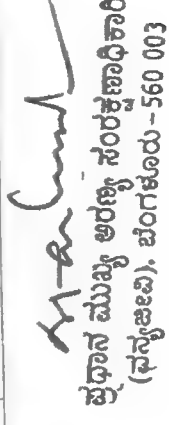 ಪ್ರಧಾನ ಮುಖ್ಯ ಅರಣ್ಯ ಸಂರಕ್ಷಣಾಧಿಕಾರಿ
(ವನ್ಯಜೀವಿ), ಬೆಂಗಳೂರು-560 003